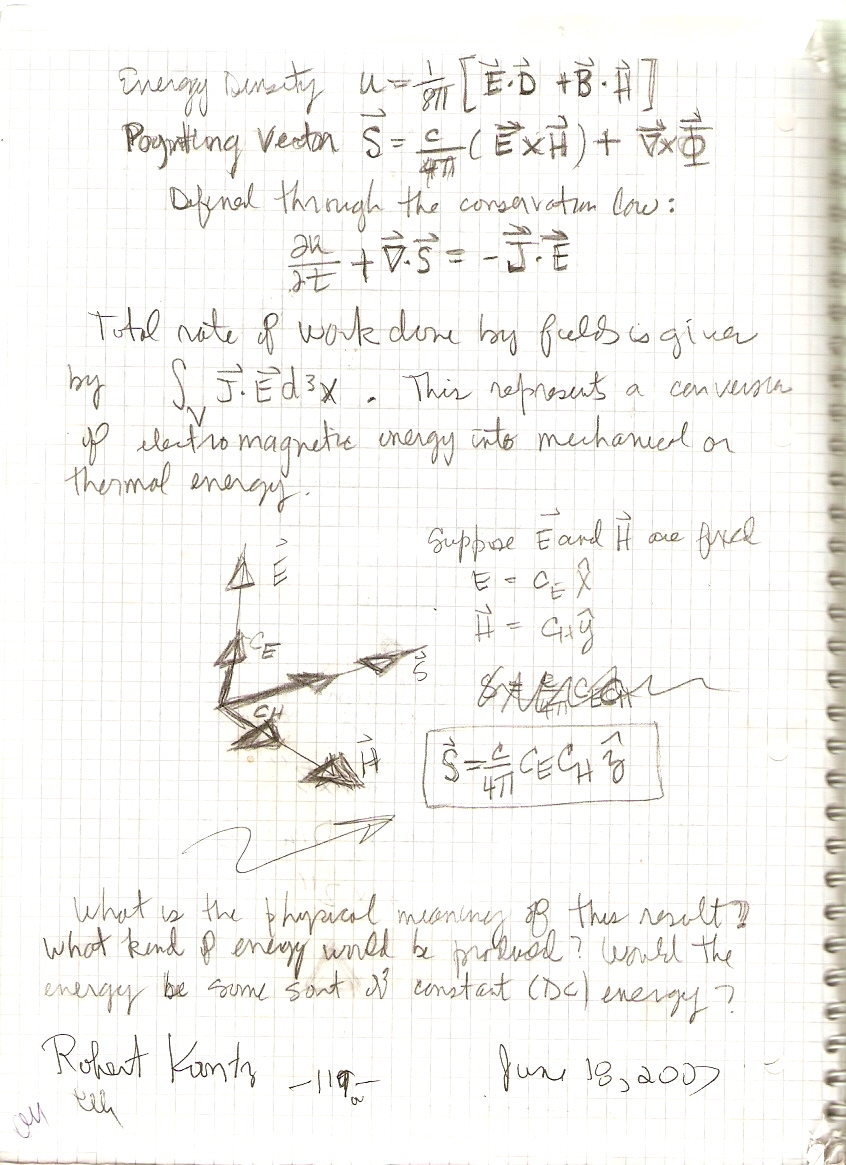 Energy Density u = 1/8π [E⃗·D⃗ + B⃗·H⃗]
Poynting Vector S⃗ = c/4π (E⃗×H⃗) + ∇⃗×Φ⃗
Defined through the conservation law:
∂u/∂t + ∇⃗·S⃗ = -J⃗·E⃗
Total rate of work done by fields is given
by ∫_V J⃗·E⃗ d³x. This represents a conversion
of electromagnetic energy into mechanical or
thermal energy.
Suppose E⃗ and H⃗ are fixed
E = C_E x̂
H⃗ = C_H ŷ
S⃗ = c/4π C_E C_H ẑ
E⃗
C_E
S⃗
C_H
H⃗
What is the physical meaning of this result?
What kind of energy would be produced? Would the
energy be some sort of constant (DC) energy?
Robert Kantz -119a- June 18, 2007